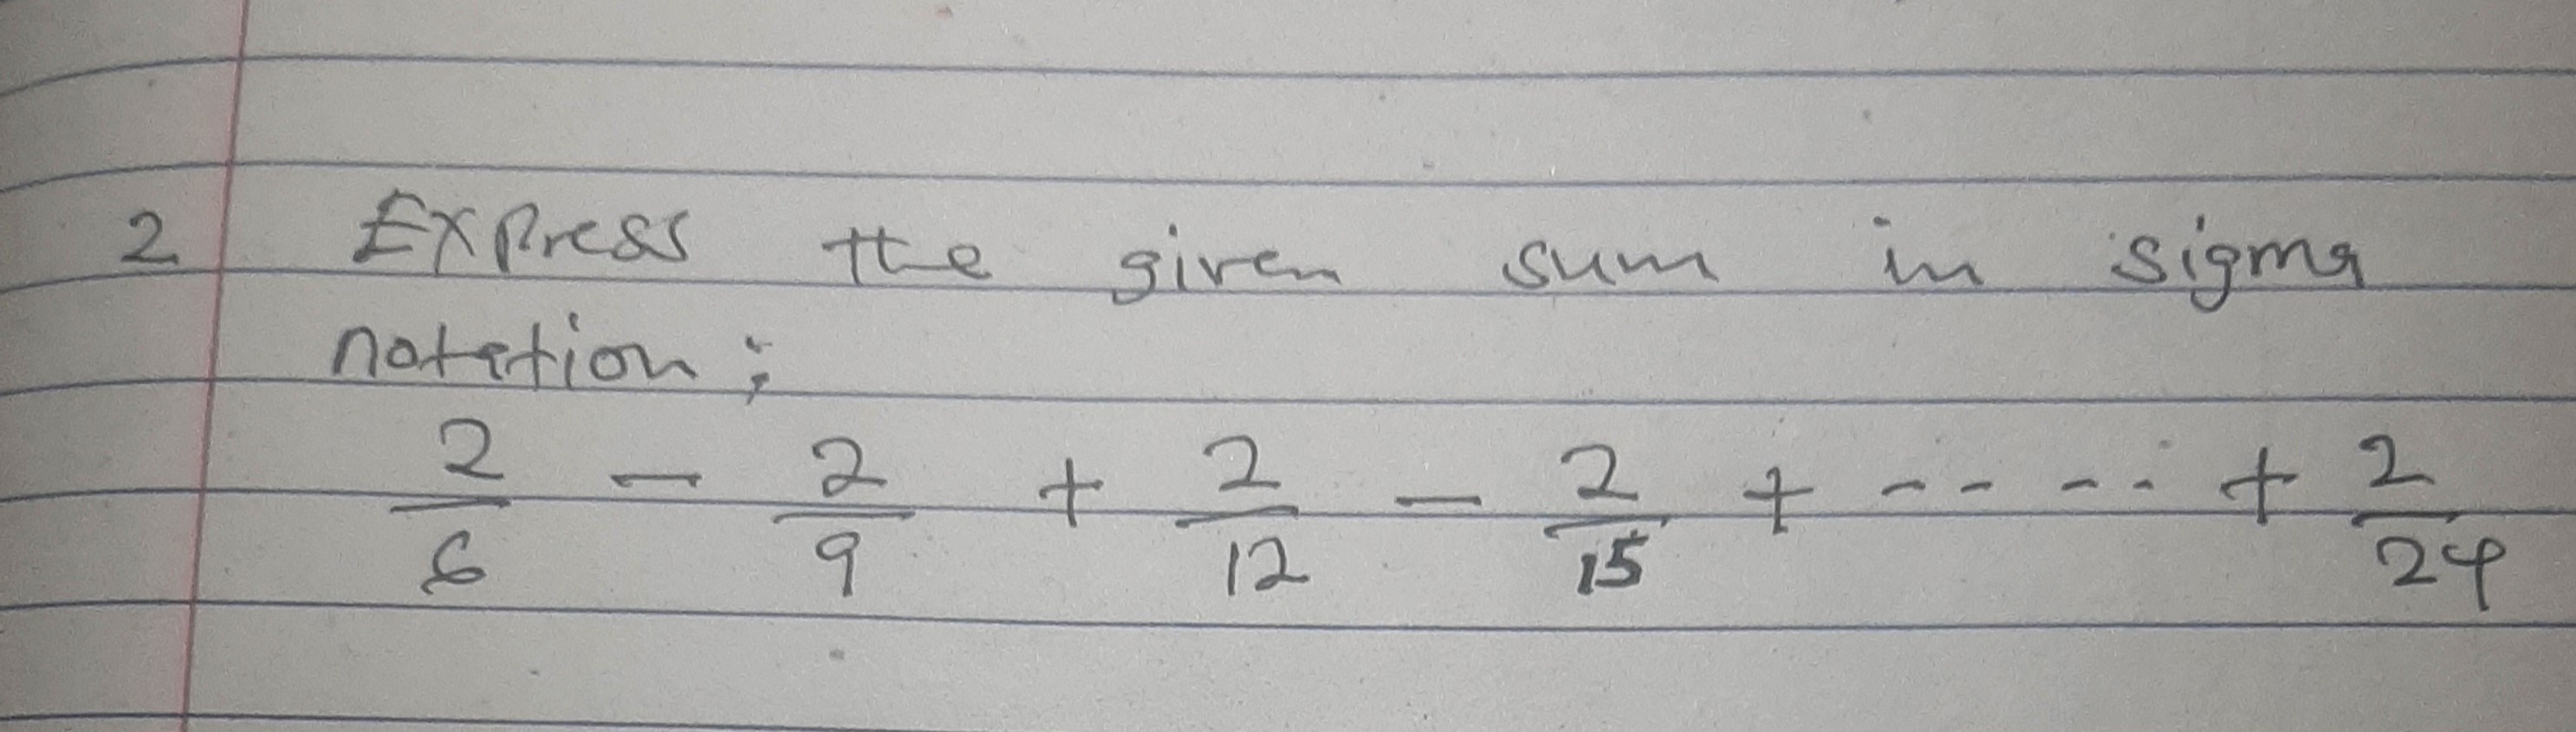 2 Express the given sum in sigma
notation;
2/6 - 2/9 + 2/12 - 2/15 + ----- + 2/24